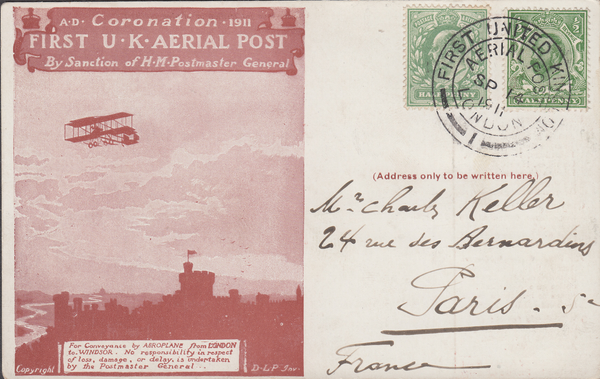 A·D· Coronation ·1911
FIRST U·K·AERIAL POST
By Sanction of H·M·Postmaster General
For Conveyance by AEROPLANE from LONDON
to WINDSOR. No responsibility in respect
of loss, damage, or delay, is undertaken
by the Postmaster General.
Copyright
D-L-P Inv.
POSTAGE
HALFPENNY
FIRST UNITED KINGDOM
AERIAL POST
SP 14
1911
LONDON
1
(Address only to be written here.)
Mr Charles Keller
24 rue des Bernardins
Paris. 5e
France